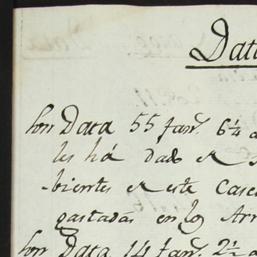 Data
Son Data 55 fan.s 6½ a
les há dado de s
-bientes de este Case
gastadas en los Arr
Son Data 14 fan.s 2½ a